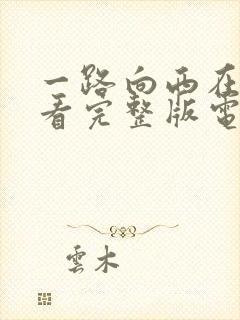 一路向西在
看完整版電
雲木